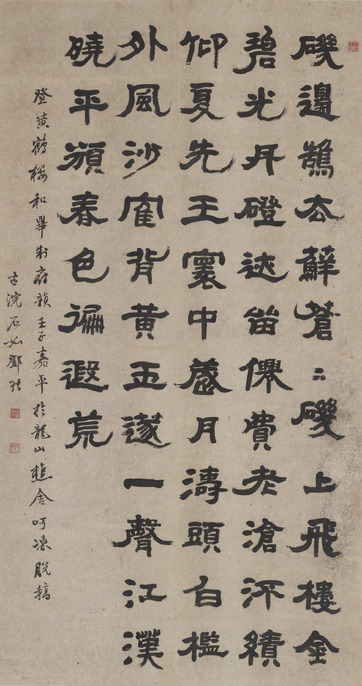 磯邊鵠去蘚蒼〻磯上飛樓金
碧光丹磴迹留僊費老滄沔績
仰夏先王寰中歲月濤頭白檻
外風沙隺背黄玉篴一聲江漢
曉平頒春色徧遐荒
登黄鶴樓和畢制府韻壬子嘉平於龍山樵舍呵凍脱稿
古浣石如鄧琰